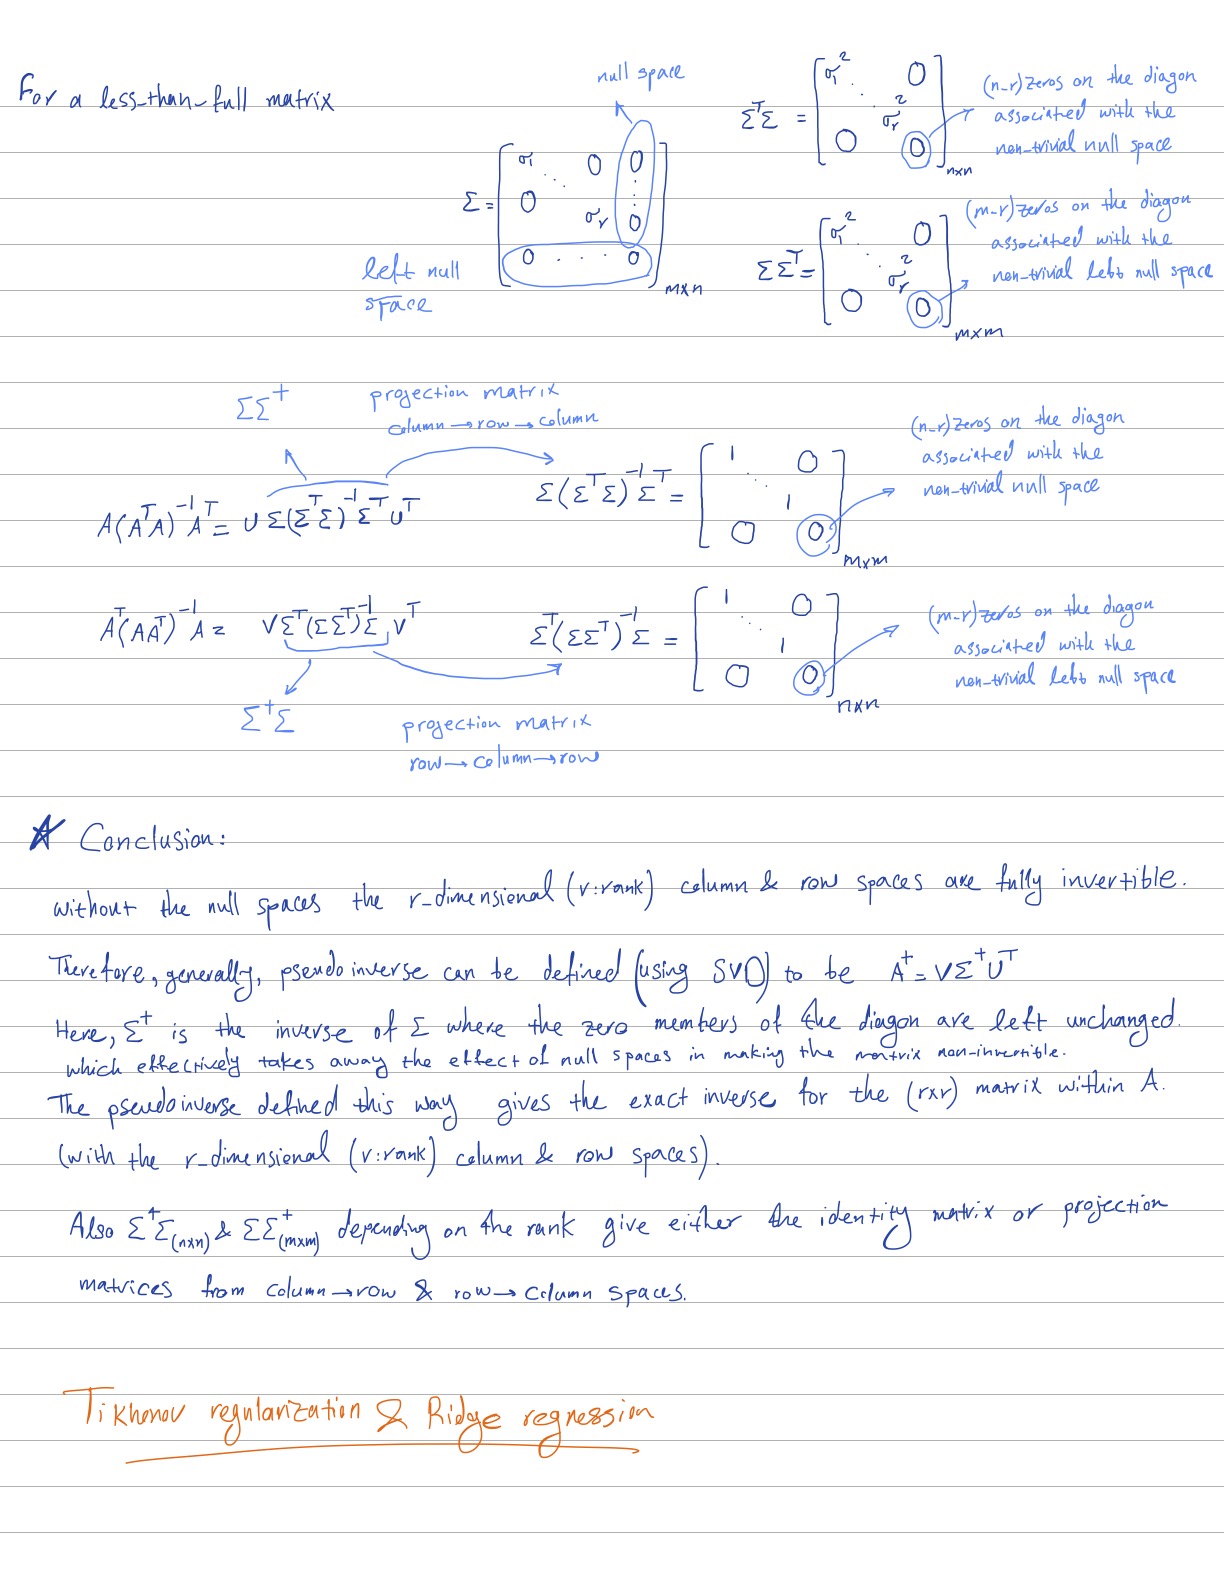 For a less-than-full matrix
null space
Σ = [σ₁ ⋱ 0 0 ⋮ 0 σᵣ 0 0 · · · 0] m×n
left null
space
ΣᵀΣ = [σ₁² ⋱ 0 σᵣ² 0 0] n×n
(n-r) zeros on the diagon
associated with the
non-trivial null space
ΣΣᵀ = [σ₁² ⋱ 0 σᵣ² 0 0] m×m
(m-r) zeros on the diagon
associated with the
non-trivial left null space
ΣΣ⁺
projection matrix
column → row → column
A(AᵀA)⁻¹Aᵀ = U Σ(ΣᵀΣ)⁻¹Σᵀ Uᵀ
Σ(ΣᵀΣ)⁻¹Σᵀ = [1 ⋱ 0 1 0 0] m×m
(n-r) zeros on the diagon
associated with the
non-trivial null space
Aᵀ(AAᵀ)⁻¹A = VΣᵀ(ΣΣᵀ)⁻¹Σ Vᵀ
Σᵀ(ΣΣᵀ)⁻¹Σ = [1 ⋱ 0 1 0 0] n×n
(m-r) zeros on the diagon
associated with the
non-trivial left null space
Σ⁺Σ
projection matrix
row → column → row
★ Conclusion:
without the null spaces the r-dimensional (r:rank) column & row spaces are fully invertible.
Therefore, generally, pseudoinverse can be defined (using SVD) to be A⁺ = VΣ⁺Uᵀ
Here, Σ⁺ is the inverse of Σ where the zero members of the diagon are left unchanged.
which effectively takes away the effect of null spaces in making the matrix non-invertible.
The pseudoinverse defined this way gives the exact inverse for the (r×r) matrix within A.
(with the r-dimensional (r:rank) column & row spaces).
Also Σ⁺Σ(n×n) & ΣΣ⁺(m×m) depending on the rank give either the identity matrix or projection
matrices from column → row & row → column spaces.
Tikhonov regularization & Ridge regression